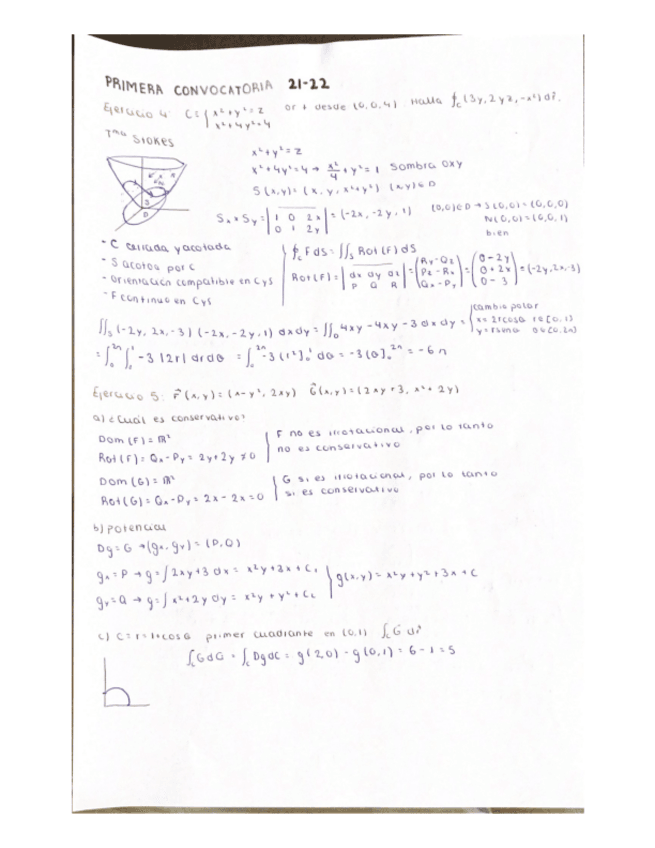 PRIMERA CONVOCATORIA 21-22
Ejercicio 4: C={x²+y²=z or + desde (0,0,4). Halla ∮c(3y, 2yz, -x²)dr̄.
x²+4y²=4
Tma Stokes
x²+y²=z
x²+4y²=4 → x²/4 + y² = 1 Sombra OXY
S(x,y)=(x, y, x²+y²) (x,y)∈D
Sx × Sy = |1 0 2x| = (-2x, -2y, 1) (0,0)∈D → S(0,0)=(0,0,0)
|0 1 2y| N(0,0)=(0,0,1)
bien
- C cerrada y acotada
- S acotos por C
- Orientación compatible en C y S
- F continuo en C y S
∮c F dS = ∬s Rot(F) dS
Rot(F)=|dx dy dz| = (Ry-Qz) = (0-2y) = (-2y, 2x, -3)
|P Q R| (Pz-Rx) (0+2x)
(Qx-Py) (0-3)
∬s(-2y, 2x, -3)(-2x, -2y, 1) dx dy = ∬D 4xy - 4xy - 3 dx dy = {cambio polar
x=2rcosθ r∈[0,1]
y=rsenθ θ∈[0,2π]
= ∫₀^2π ∫₀^1 -3|2r| dr dθ = ∫₀^2π -3[r²]₀^1 dθ = -3[θ]₀^2π = -6π
Ejercicio 5: F̄(x,y)=(x-y², 2xy) Ḡ(x,y)=(2xy+3, x²+2y)
a) ¿Cuál es conservativo?
Dom (F)=ℝ²
Rot(F)=Qx-Py=2y+2y≠0
F no es irrotacional, por lo tanto
no es conservativo
Dom (G)=ℝ²
Rot(G)=Qx-Py=2x-2x=0
G si es irrotacional, por lo tanto
si es conservativo
b) Potencial
Dg=G → (gx, gy)=(P,Q)
gx=P → g=∫2xy+3 dx = x²y+3x+C₁
gy=Q → g=∫x²+2y dy = x²y+y²+C₂
g(x,y)=x²y+y²+3x+C
c) C=r=1+cosθ primer cuadrante en (0,1) ∫c G dr̄
∫c G dG = ∫c Dg dC = g(2,0) - g(0,1) = 6-1=5